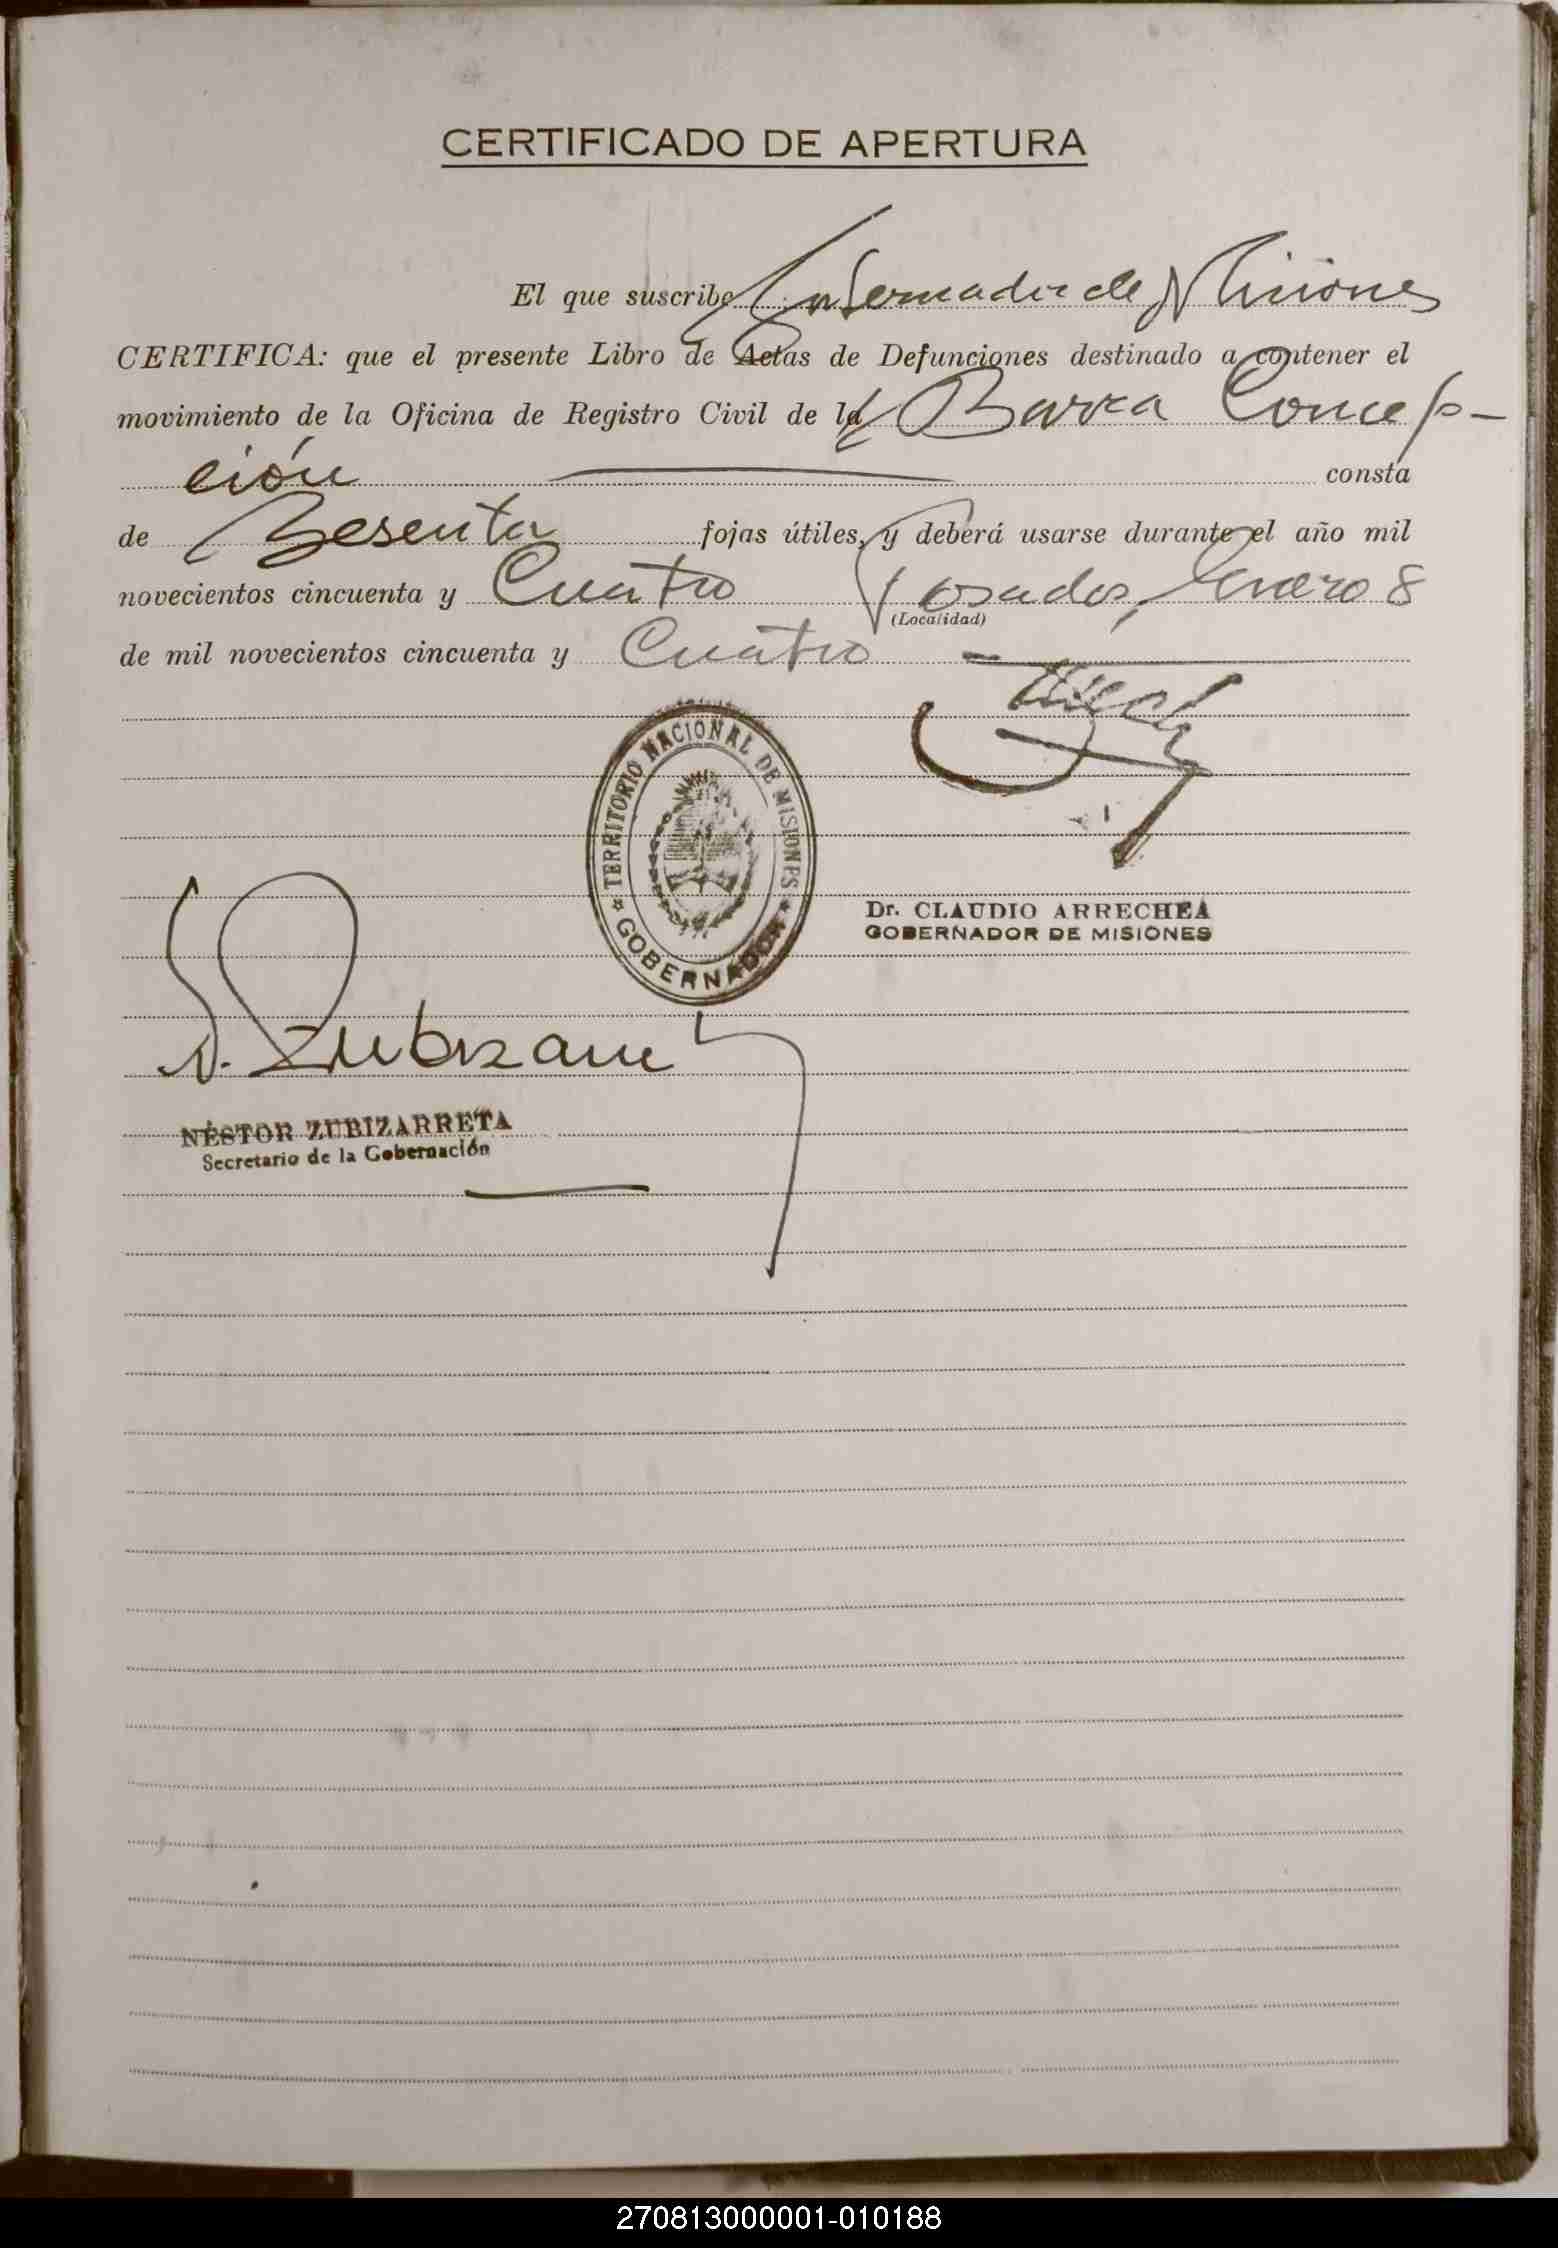 CERTIFICADO DE APERTURA
El que suscribe Gobernador de Misiones
CERTIFICA: que el presente Libro de Actas de Defunciones destinado a contener el
movimiento de la Oficina de Registro Civil de la Barra Concep-
ción consta
de Sesenta fojas útiles, y deberá usarse durante el año mil
novecientos cincuenta y Cuatro Posadas, Enero 8
(Localidad)
de mil novecientos cincuenta y Cuatro
TERRITORIO NACIONAL DE MISIONES
GOBERNADOR
Dr. CLAUDIO ARRECHEA
GOBERNADOR DE MISIONES
N. Zubizarre
NÉSTOR ZUBIZARRETA
Secretario de la Gobernación
270813000001-010188